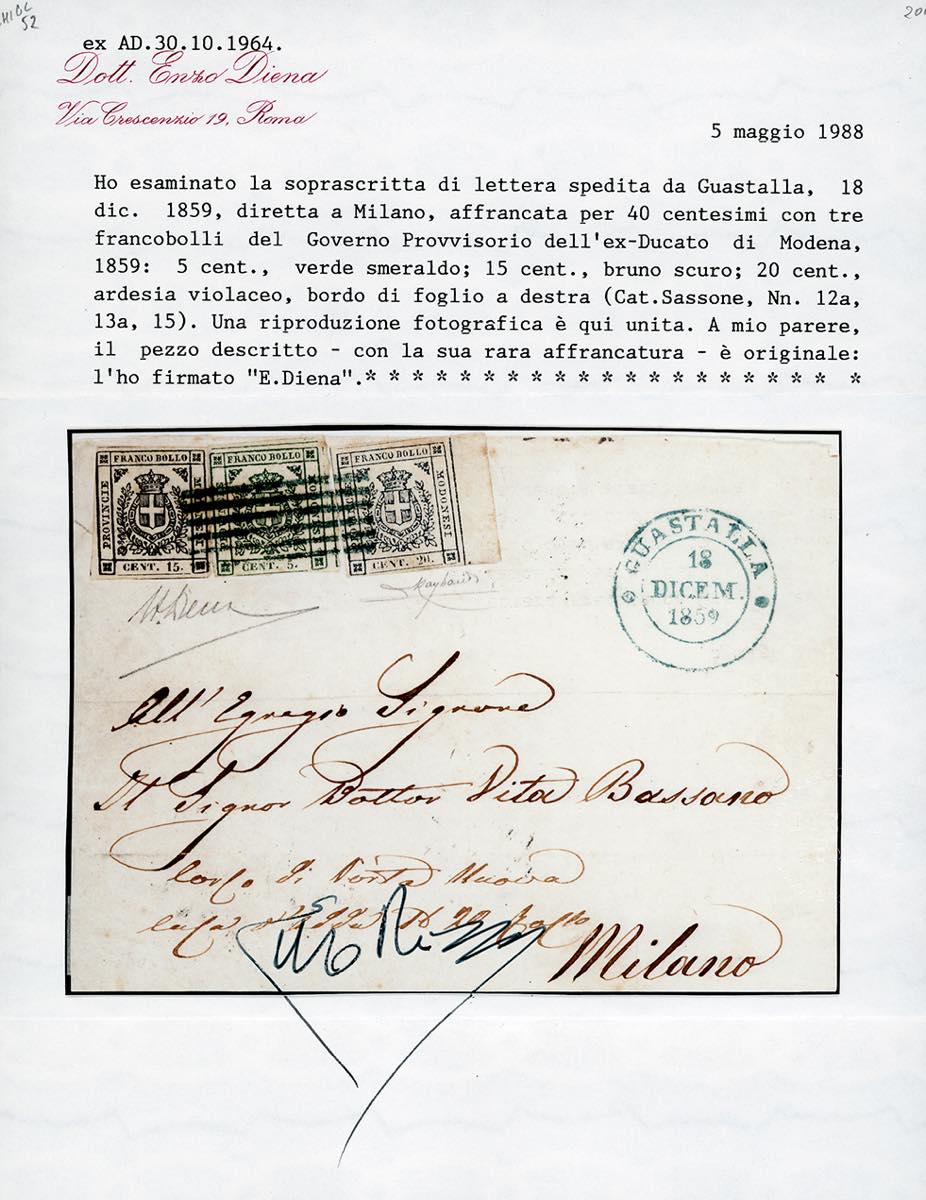 52
ex AD.30.10.1964.
Dott. Enzo Diena
Via Crescenzio 19, Roma
5 maggio 1988
Ho esaminato la soprascritta di lettera spedita da Guastalla, 18
dic. 1859, diretta a Milano, affrancata per 40 centesimi con tre
francobolli del Governo Provvisorio dell'ex-Ducato di Modena,
1859: 5 cent., verde smeraldo; 15 cent., bruno scuro; 20 cent.,
ardesia violaceo, bordo di foglio a destra (Cat.Sassone, Nn. 12a,
13a, 15). Una riproduzione fotografica è qui unita. A mio parere,
il pezzo descritto - con la sua rara affrancatura - è originale:
l'ho firmato "E.Diena".* * * * * * * * * * * * * * * * * * * * *
FRANCO BOLLO
PROVINCIE
CENT. 15.
FRANCO BOLLO
CENT. 5.
FRANCO BOLLO
MODONESI
CENT. 20.
GUASTALLA
18
DICEM.
1859
All'Egregio Signore
Il Signor Dottor Vita Bassano
Corso di Porta Nuova
Milano